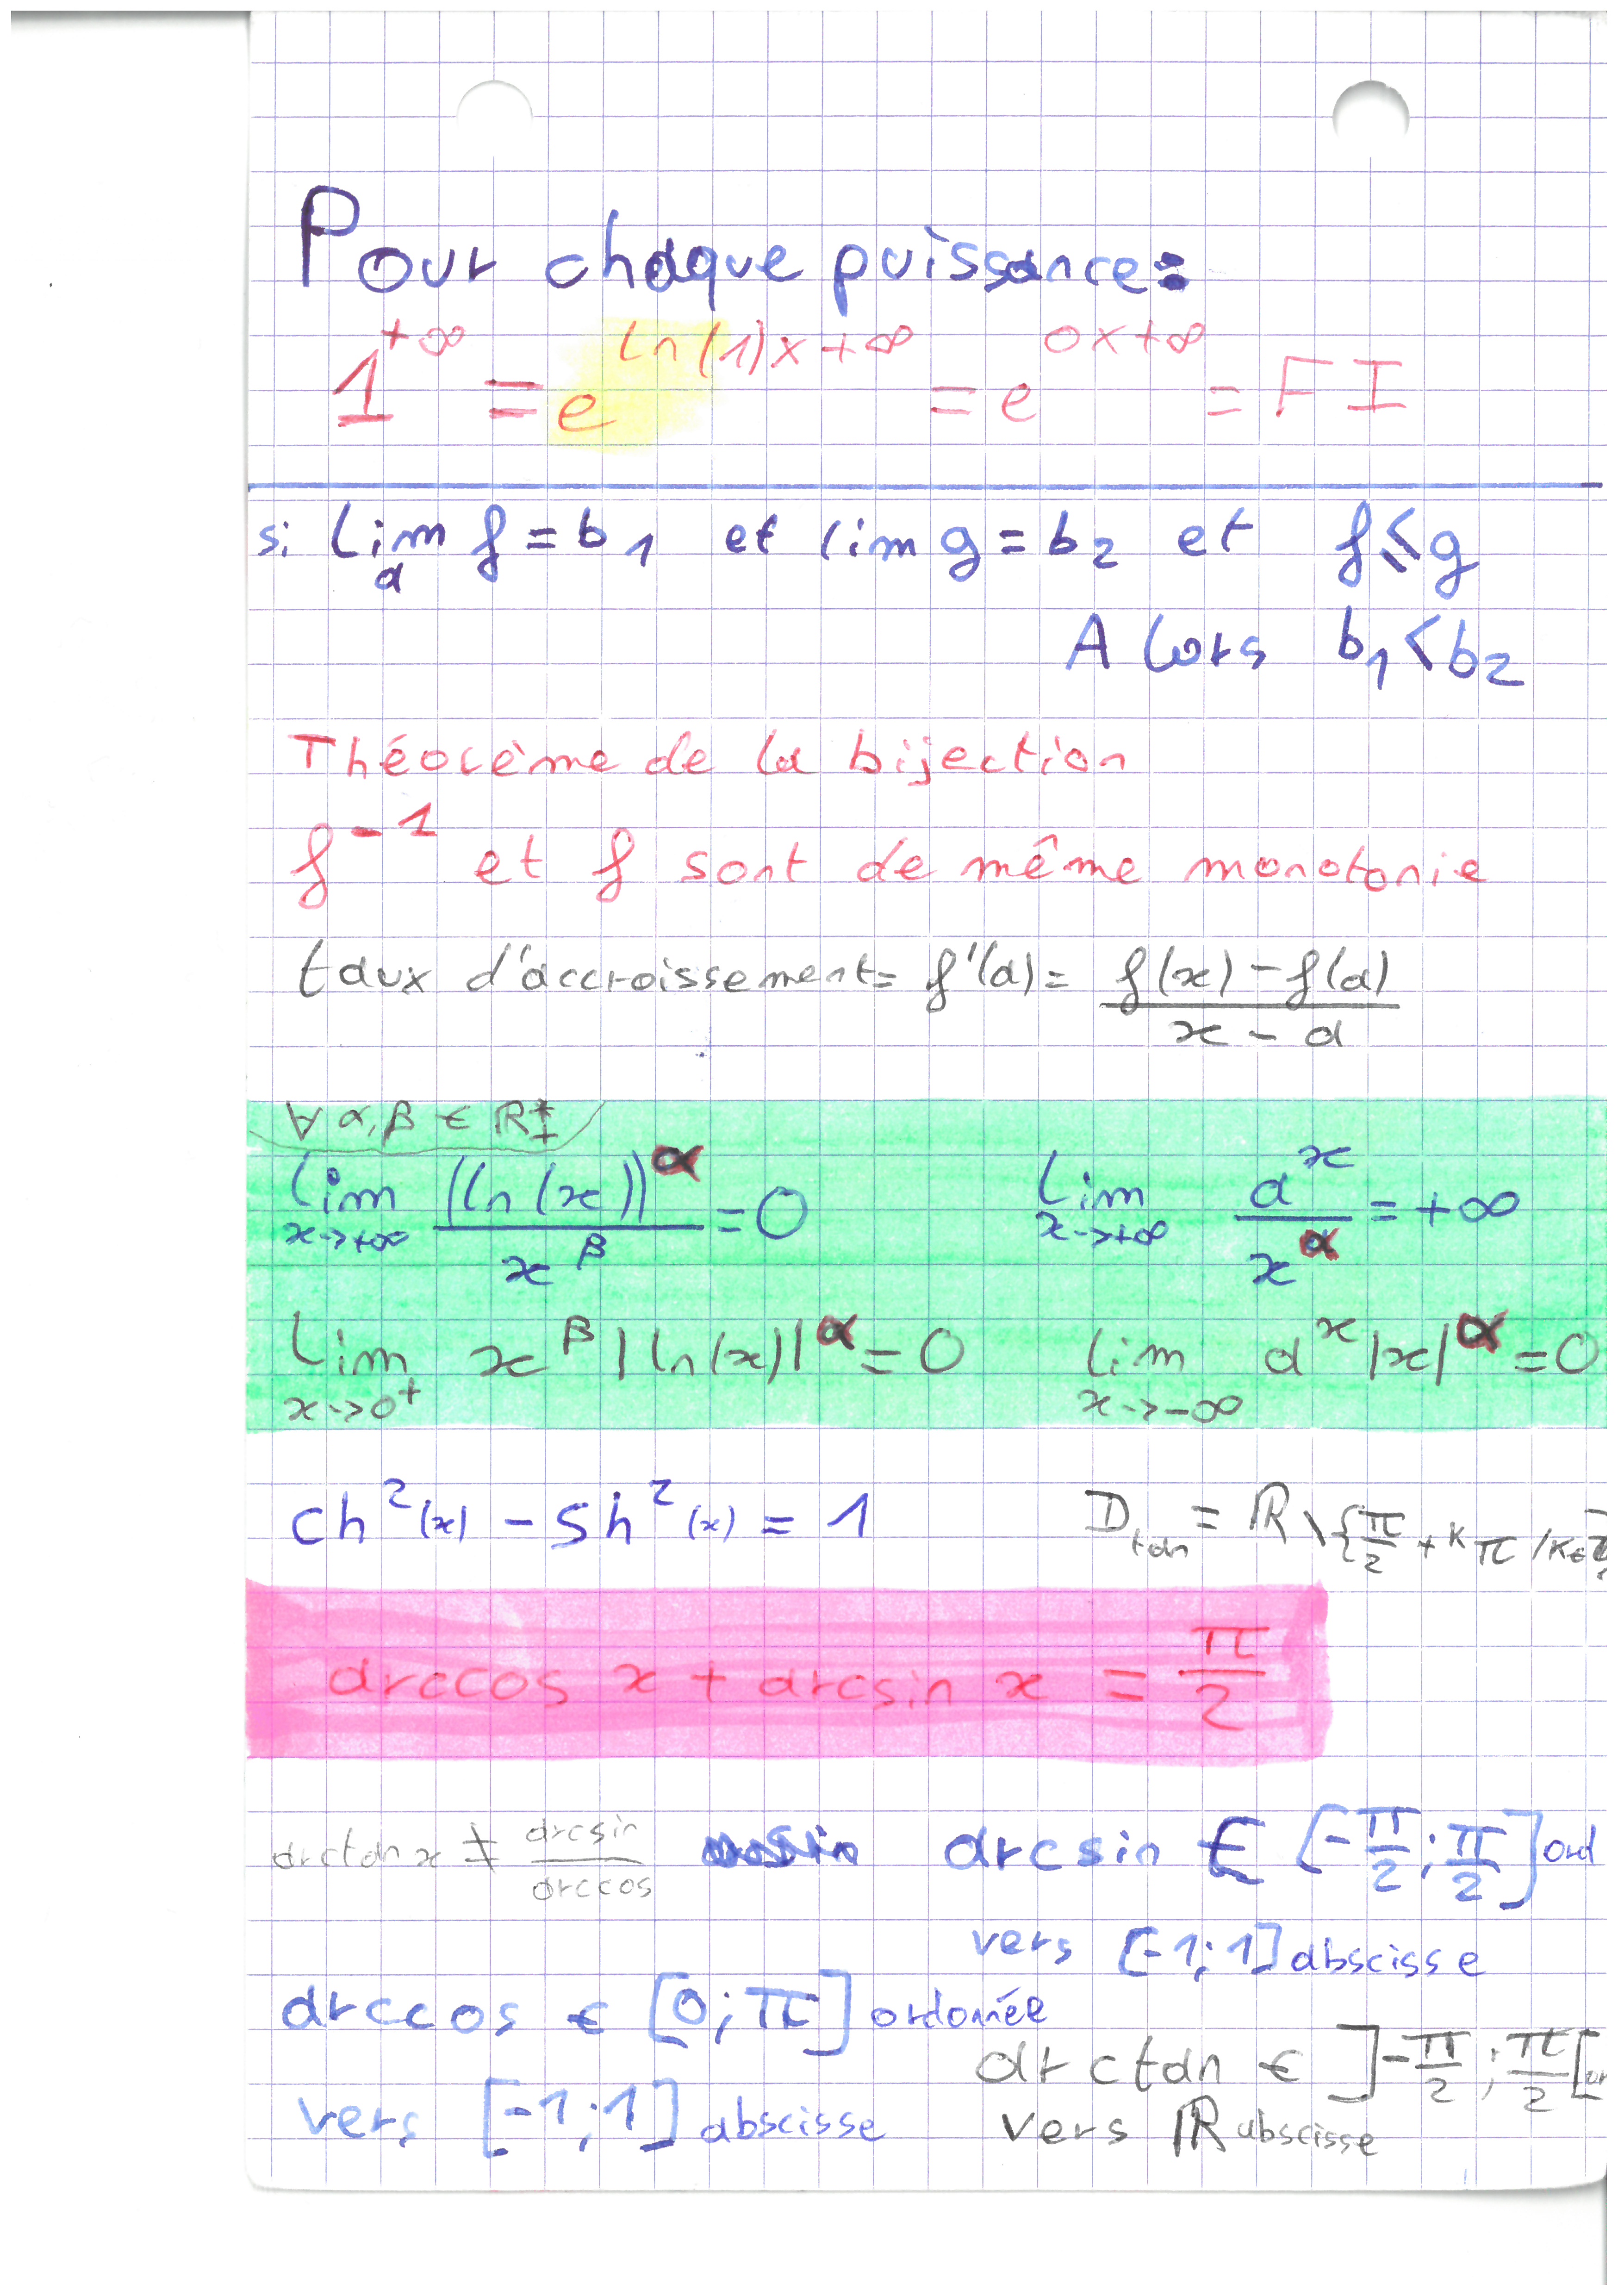 Pour chaque puissance :
1^{+∞} = e^{ln(1)×+∞} = e^{0×+∞} = FI
si lim_a f = b_1 et lim g = b_2 et f ⩽ g
Alors b_1 < b_2
Théorème de la bijection
f^{-1} et f sont de même monotonie
taux d'accroissement = f'(a) = \frac{f(x) - f(a)}{x - a}
∀ α, β ∈ ℝ^*_+
lim_{x→+∞} \frac{(ln(x))^α}{x^β} = 0 lim_{x→+∞} \frac{a^x}{x^α} = +∞
lim_{x→0^+} x^β |ln(x)|^α = 0 lim_{x→-∞} a^x |x|^α = 0
ch^2(x) - sh^2(x) = 1 D_{tan} = ℝ \ {\frac{π}{2} + kπ / k ∈ ℤ
arccos x + arcsin x = \frac{π}{2}
arctan x ≠ \frac{arcsin}{arccos} arcsin ∈ [-\frac{π}{2} ; \frac{π}{2}] ord
vers [-1 ; 1] abscisse
arccos ∈ [0 ; π] ordonnée
vers [-1 ; 1] abscisse
arctan ∈ ]-\frac{π}{2} ; \frac{π}{2}[
vers ℝ abscisse